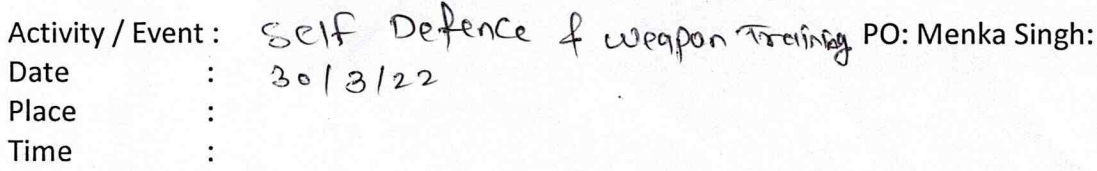 Activity / Event : Self Defence & weapon Training PO: Menka Singh:
Date : 30/3/22
Place :
Time :